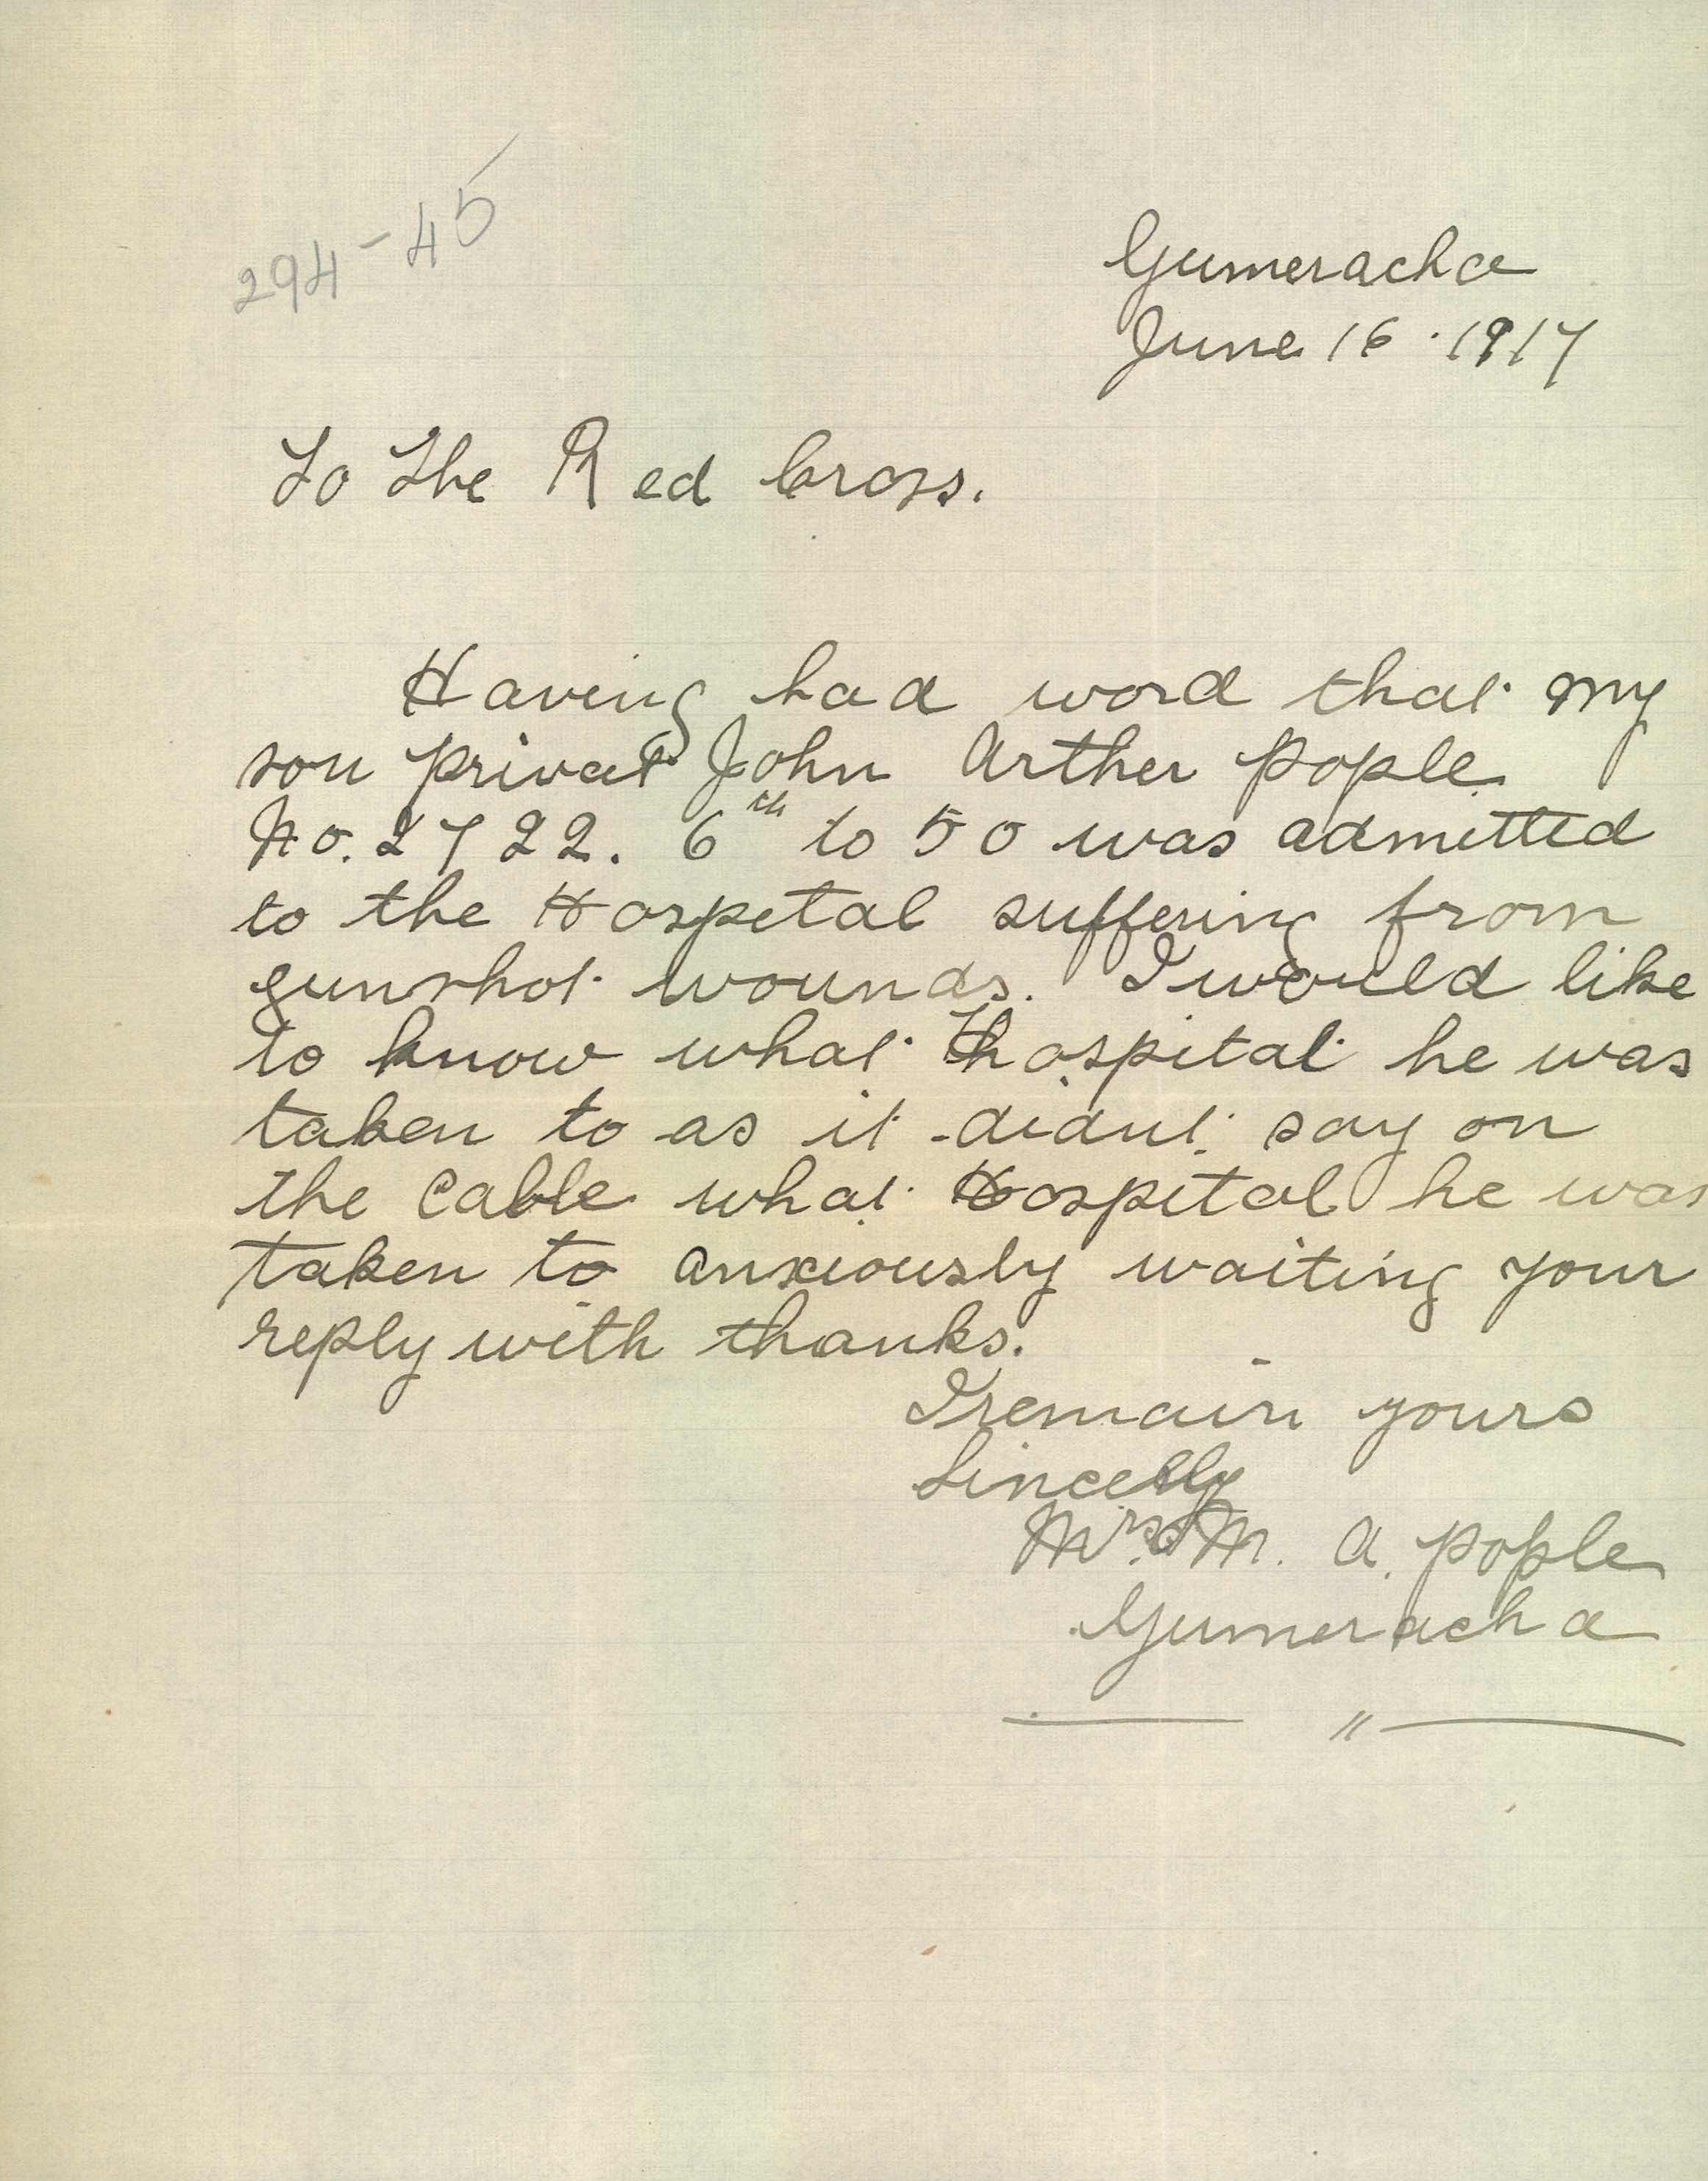 294-45
Gumeracha
June 16 . 1917
To The Red Cross.
Having had word that my
son privat John Arther Pople
No. 2722. 6th to 50 was admitted
to the Hospetal suffering from
gunshot wounds. I would like
to know what Hospital he was
taken to as it didnt say on
the Cable what Hospital he was
taken to anxiously waiting your
reply with thanks.
I remain yours
Sincelly
Mrs M. A. Pople
Gumeracha